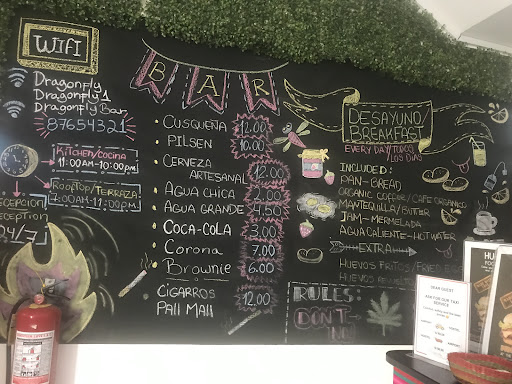 WIFI
Dragonfly
Dragonfly 1
Dragonfly Bar
87654321
KITCHEN/COCINA
11:00AM-10:00PM
ROOFTOP/TERRAZA
7:00AM-11:00PM
RECEPCION
RECEPTION
24/7
BAR
CUSQUEÑA 12.00
PILSEN 10.00
CERVEZA
ARTESANAL 12.00
AGUA CHICA 2.00
AGUA GRANDE 4.50
COCA-COLA 3.00
Corona 7.00
Brownie 6.00
CIGARROS
Pall Mall 12.00
DESAYUNO/
BREAKFAST
EVERY DAY/TODOS
LOS DIAS
INCLUDED:
PAN-BREAD
ORGANIC COFFEE/CAFE ORGANICO
MANTEQUILLA/BUTTER
JAM-MERMELADA
AGUA CALIENTE-HOT WATER
EXTRA
HUEVOS FRITOS/FRIED
HUEVOS
RULES:
DON'T
DEAR GUEST
ASK FOR OUR TAXI
SERVICE